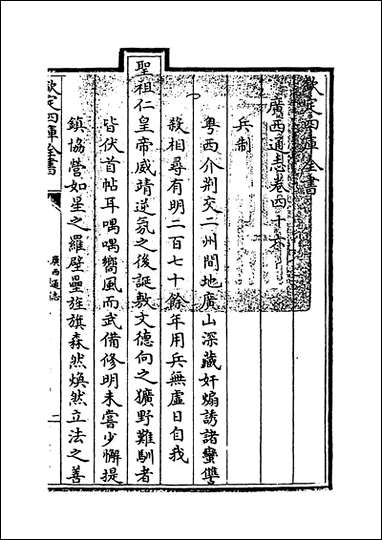 欽定四庫全書
廣西通志卷四十六
兵制
粤西介荆交二州間地廣山深藏奸煽誘諸蠻讐
殺相尋有明二百七十餘年用兵無虛日自我
聖祖仁皇帝威靖逆氛之後誕敷文德向之獷野難馴者
皆伏首帖耳喁喁嚮風而武備修明未嘗少懈提
鎮協營如星之羅壁壘旌旗森然煥然立法之善
欽定四庫全書
廣西通志